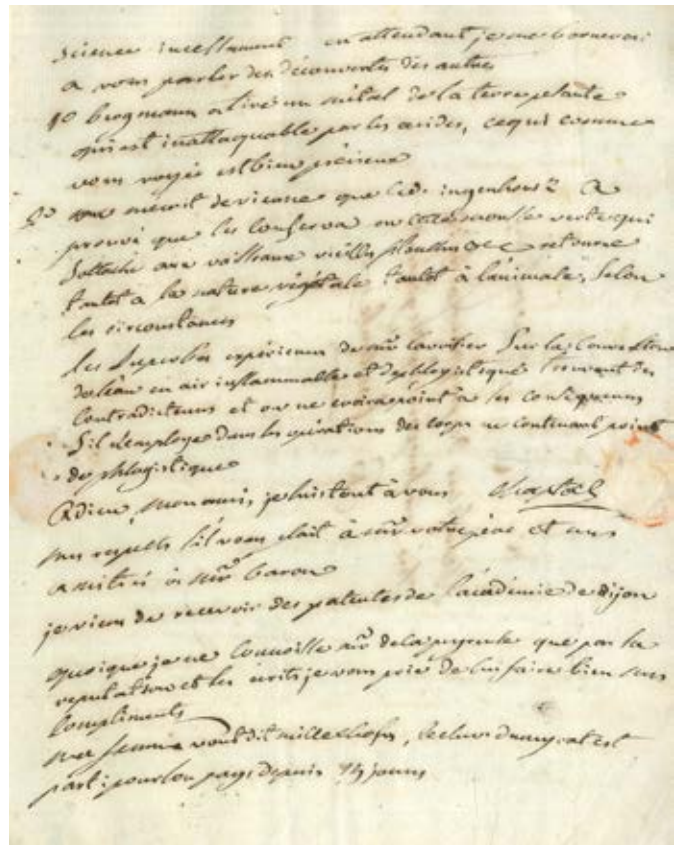 science incessament en attendant je me bornerai
a vous parler des découvertes des autres
1o bergmann a tiré un métal de la terre pesante
qui est inattaquable par les acides, ce qui comme
vous voyés est bien précieux
2o on m'ecrit de vienne que le d. ingenhousz a
prouvé que les conferva ou cette mousse verte qui
s'attache aux vaisseaux vieilles planches &c retourne
tantot a la nature végétale tantot à l'animale, selon
les circonstances
les superbes expériences de mr lavoisier sur la conversion
de l'eau en air inflammable et dephlogistiqué trouvent des
contradicteurs et on ne croira point a ses consequences
s'il n'employe dans les opérations des corps ne contenant point
de phlogistique
adieu, mon ami, je suis tout à vous chaptal
mes respects s'il vous plait à mr votre père et mes
amitiés à mr baron
je viens de recevoir des patentes de l'académie de dijon
quoique je ne connoisse mr de la peyrouse que par sa
reputation et ses écrits je vous prie de lui faire bien mes
compliments
ma femme vous dit mille choses, est
parti pour son pays depuis 15 jours